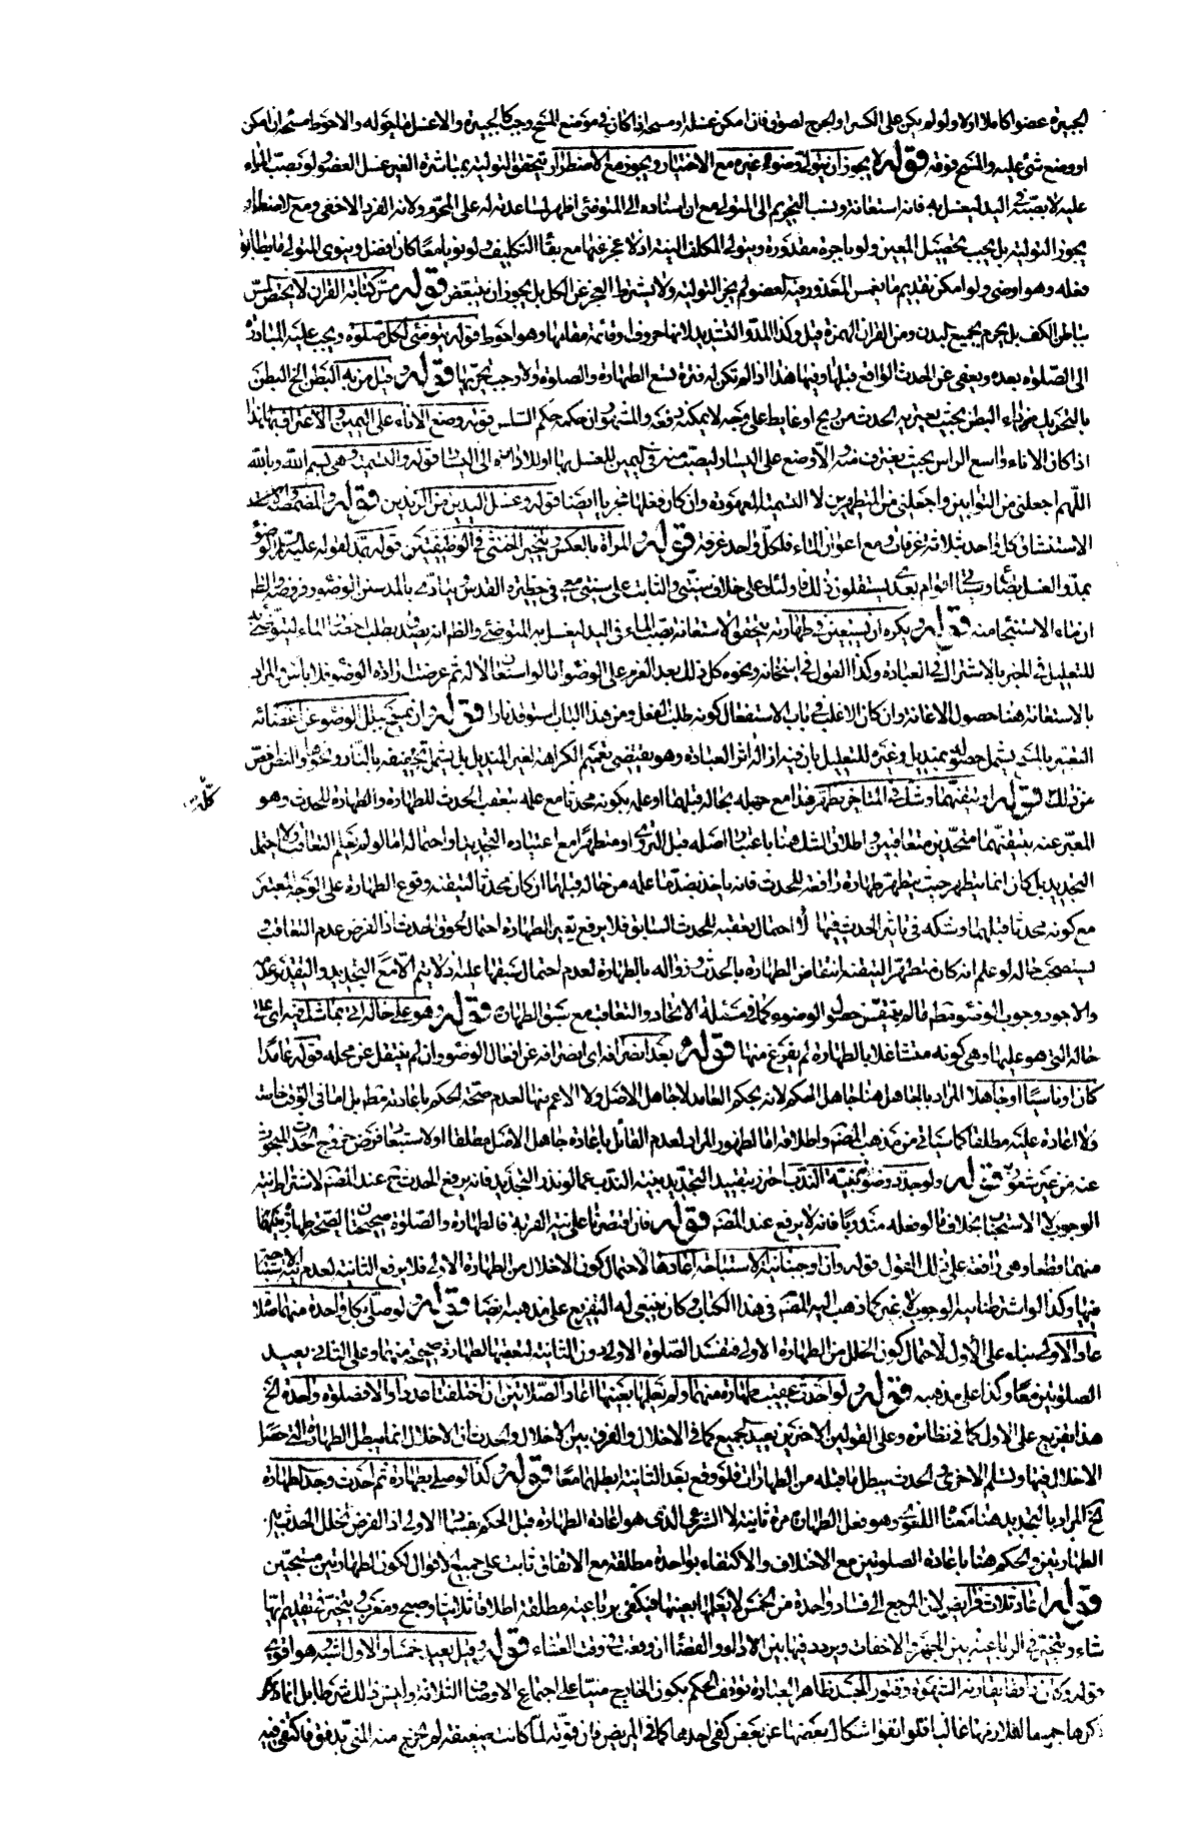 الجبيرة عضوا كاملا اولا ولو لم يكن على الكسر او الجرح لصوق فان امكن غسله او مسحه اذا كان في موضع المسح وجب كالجبيرة والا غسل ما حوله والاحوط مسحه ان امكن
او وضع شئ عليه والمسح فوقه قوله لا يجوز ان يتولى وضوءه غيره مع الاختيار ويجوز مع الاضطرار تتحقق التولية بمباشرة الغير غسل العضو ولو بصب الماء
عليه لا بصبه في اليد ليغسل به فانه استعانة ونسب التحريم الى المتولي مع ان اسناده الى المتوضئ اظهر لمساعدته له على المحرم ولانه الفرد الاخفى ومع الاضطرار
يجوز التولية بل يجب تحصيل المعين ولو باجرة مقدورة ويتولى المكلف النية اذ لا عجز عنها مع بقاء التكليف ولو نويا معا كان افضل وينوي المتولي ما يطابق
فعله وهو اوضي ولو امكن تقديم ما يغمس المعذور فيه العضو لم يجز التولية ولا يشترط العجز عن الكل بل يجوز ان يتبعض قوله مس كتابة القران لا يختص المس
بباطن الكف بل يحرم بجميع البدن ومن القران الهمزة قيل وكذا المد والتشديد لانها حروف او قائمة مقامها وهو احوط قوله يتوضئ لكل صلوة ويجب عليه المبادرة
الى الصلوة بعده ويعفى عن الحدث الواقع قبلها وفيها هذا اذا لم تكن له فترة تسع الطهارة والصلوة والا وجب تحريها قوله وقيل من به البطن الخ البطن
بالتحريك داء البطن بحيث يعتريه الحدث من ريح او غايط على وجه لا يمكنه دفعه والمشهور ان حكمه حكم السلس قوله وضع الاناء على اليمين والاغتراف بها هذا
اذا كان الاناء واسع الراس بحيث يغترف منه والا وضع على اليسار ليصب منه في اليمين للغسل بها او للادارة الى اليسار قوله والتسمية وهي بسم الله وبالله
اللهم اجعلني من التوابين واجعلني من المتطهرين لا التسمية المعهودة وان كان فعلها مجزيا ايضا قوله وغسل اليدين من الزندين قوله والمضمضة و
الاستنشاق كل واحد بثلاث غرفات ومع اعواز الماء فلكل واحد غرفة قوله والمراة بالعكس ويتخير الخنثى في الوظيفتين قوله بمد لقوله عليه السلام الوضوء
بمد والغسل بصاع وسياتي اقوام بعدي يستقلون ذلك فاولئك على خلاف سنتي والثابت على سنتي معي في حظيرة القدس ويتادى بالمد سنن الوضوء وفروضه والظاهر
ان ماء الاستنجاء منه قوله ويكره ان يستعين في طهارته يتحقق الاستعانة بصب الماء في اليد ليغسل به المتوضئ والظاهر انه يصدق بطلب احضار الماء ليتوضئ به
للتعليل في الخبر بالاشتراك في العبادة وكذا القول في اسخانه ونحوه كل ذلك بعد العزم على الوضوء اما لو استعان لا له ثم عرضت ارادة الوضوء فلا باس والمراد
بالاستعانة هنا حصول الاعانة وان كان الاغلب في باب الاستفعال كونه طلب الفعل ومن هذا الباب استوقد نارا قوله وان يمسح بلل الوضوء عن اعضائه
التعبير بالمسح يشمل حصوله بمنديل وغيره للتعليل بان فيه ازالة اثر العبادة وهو يقتضي تعميم الكراهة لغير المنديل بل يشمل تجفيفه بالنار ونحوها والنص اخص
من ذلك قوله او تيقنهما وشك في المتاخر تطهر هذا مع جهله بحاله قبلهما او علمه بكونه محدثا مع علمه بتعقب الحدث للطهارة والطهارة للحدث وهو
المعبر عنه بتيقنهما متحدين متعاقبين واطلاق الشك هنا باعتبار اصله قبل التروي او متطهرا مع اعتياده التجديد او احتماله اما لو لم يعلم التعاقب ولا احتمل
التجديد بل كان انما يتطهر حيث يتطهر طهارة رافعة للحدث فانه ياخذ بضد ما علمه من حاله قبلهما ان كان محدثا لتيقنه وقوع الطهارة على الوجه المعتبر
مع كونه محدثا قبلهما وشكه في تاثير الحدث فيها لا احتمال تعقبه للحدث السابق فلا يرفع يقين الطهارة احتمال لحوق الحدث اذ الفرض عدم التعاقب و
يستصحب حاله لو علم انه كان متطهرا لتيقنه انتقاض الطهارة بالحدث وزواله بالطهارة لعدم احتمال سبقها عليه اذ لا يتم الا مع التجديد والتقدير عدمه
والاجود وجوب الوضوء مطلقا ما لم يتيقن حصول الوضوء كما في مسئلة الاتحاد والتعاقب مع سبق الطهارة قوله وهو على حاله اتى بما شك فيه اي على
حاله التي هو عليها وهي كونه متشاغلا بالطهارة لم يفرغ منها قوله بعد انصرافه اي انصرافه عن افعال الوضوء وان لم ينتقل عن محله قوله عامدا
كان او ناسيا او جاهلا المراد بالجاهل هنا جاهل الحكم لانه بحكم العامد لا جاهل الاصل ولا الاعم منهما لعدم صحة الحكم باعادته مطلقا بل اما في الوقت خاصة
ولا اعادة عليه مطلقا كما سياتي من مذهب المصنف واطلاقه اما لظهور المراد لعدم القائل باعادة جاهل الاصل مطلقا او لاستبعاد فرض خروج احد الحدث المبحوث
عنه من غير شعور قوله ولو جدد وضوءه بنية الندب احترز بتقييد التجديد بنية الندب عما لو نذر التجديد فانه يرفع الحدث ح عند المصنف لاشتراط نية
الوجوب لا الاستباحة بخلاف ما لو فعله مندوبا فانه لا يرفع عند المصنف قوله فان اقتصرنا على نية القربة فالطهارة والصلوة صحيحتان لصحة طهارة
منهما قطعا وهي رافعة على ذلك القول قوله وان اوجبنا نية الاستباحة اعادهما لاحتمال كون الاخلال من الطهارة الاولى فلا يرفع الثانية لعدم نية الاستباحة
فيها وكذا لو اشترطنا نية الوجوب لا غير كما ذهب اليه المصنف في هذا الكتاب وكان ينبغي له التفريع على مذهبه ايضا قوله ولو صلى بكل واحدة منهما صلوة
اعاد الاولى بناء على الاول لاحتمال كون الخلل من الطهارة الاولى فتفسد الصلوة الاولى دون الثانية لتعقبها لطهارة صحيحة منهما وعلى الثاني يعيد
الصلوتين معا وكذا على مذهبه قوله ولو احدث عقيب طهارة منهما ولم يعلمها بعينها اعاد الصلاتين ان اختلفتا عددا والا فصلوة واحدة الخ
هذا تفريع على الاول كما في نظائره وعلى القولين الاخيرين يعيد الجميع كما في الاخلال والفرق بين الاخلال والحدث ان الاخلال انما يبطل الطهارة التي حصل
الاخلال فيها وتسلم الاخرى والحدث يبطل ما قبله من الطهارات فلو وقع بعد الثانية ابطلهما معا قوله وكذا لو صلى بطهارة ثم احدث وجدد طهارة
الخ المراد بالتجديد هنا معناه اللغوي وهو فعل الطهارة مرة ثانية لا الشرعي الذي هو اعادة الطهارة قبل الحكم بفساد الاولى اذ الفرض تخلل الحدث بين
الطهارتين والحكم هنا باعادة الصلوتين مع الاختلاف والاكتفاء بواحدة مطلقة مع الاتفاق ثابت على جميع الاقوال لكون الطهارتين مبيحتين
قوله اعاد ثلاث فرائض لان المرجع الى فساد واحدة من الخمس لا يعلمها بعينها فيكفي رباعية مطلقة اطلاقا ثلاثيا وصبح ومغرب ويتخير في تقديم ايها
شاء ويتخير في الرباعية بين الجهر والاخفات ويردد فيها بين الاداء والقضاء ان وقعت في وقت العشاء قوله وقيل يعيد خمسا والاول اشبه هو اقوى
قوله وكان دافقا يقارنه الشهوة وفتور الجسد ظاهر العبارة توقف الحكم بكون الخارج منيا على اجتماع الاوصاف الثلاثة وليس ذلك شرطا بل انما ذكر
ذكرها جميعا لتلازمها غالبا فلو اتفق انفكاك بعضها عن بعض كفى احدها كما في المريض فان قوته لما كانت ضعيفة لم يخرج منه المني بدفق فاكتفى فيه